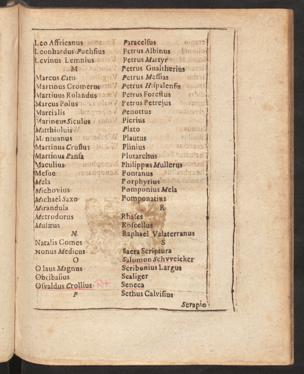 Leo Affricanus
Leonhardus Fuchsius
Levinus Lemnius
M
Marcus Cato
Martinus Cromerus
Martinus Rolandus
Marcus Polus
Martialis
Marineus Siculus
Matthiolus
Martinus Crusius
Mesue
Mela
Michovius
Michael Saxo
Mirandula
Metrodorus
N
Natalis Comes
Nonus Medicus
O
Olaus Magnus
Osvaldus Crollius
P
Paracelsus
Petrus Albinus
Petrus Martyr
Petrus Gualtherius
Petrus Messias
Petrus Hispalensis
Petrus Forestus
Petrus Petrejus
Penottus
Pierius
Plato
Plautus
Plinius
Plutarchus
Philippus Mullerus
Pontanus
Porphyrius
Pomponius Mela
Pomponatius
R
Rhases
Roscellus
Raphael Valaterranus
S
Sacra Scriptura
Salomon Schvveicker
Scribonius Largus
Scaliger
Seneca
Sethus Calvisius
Serapio